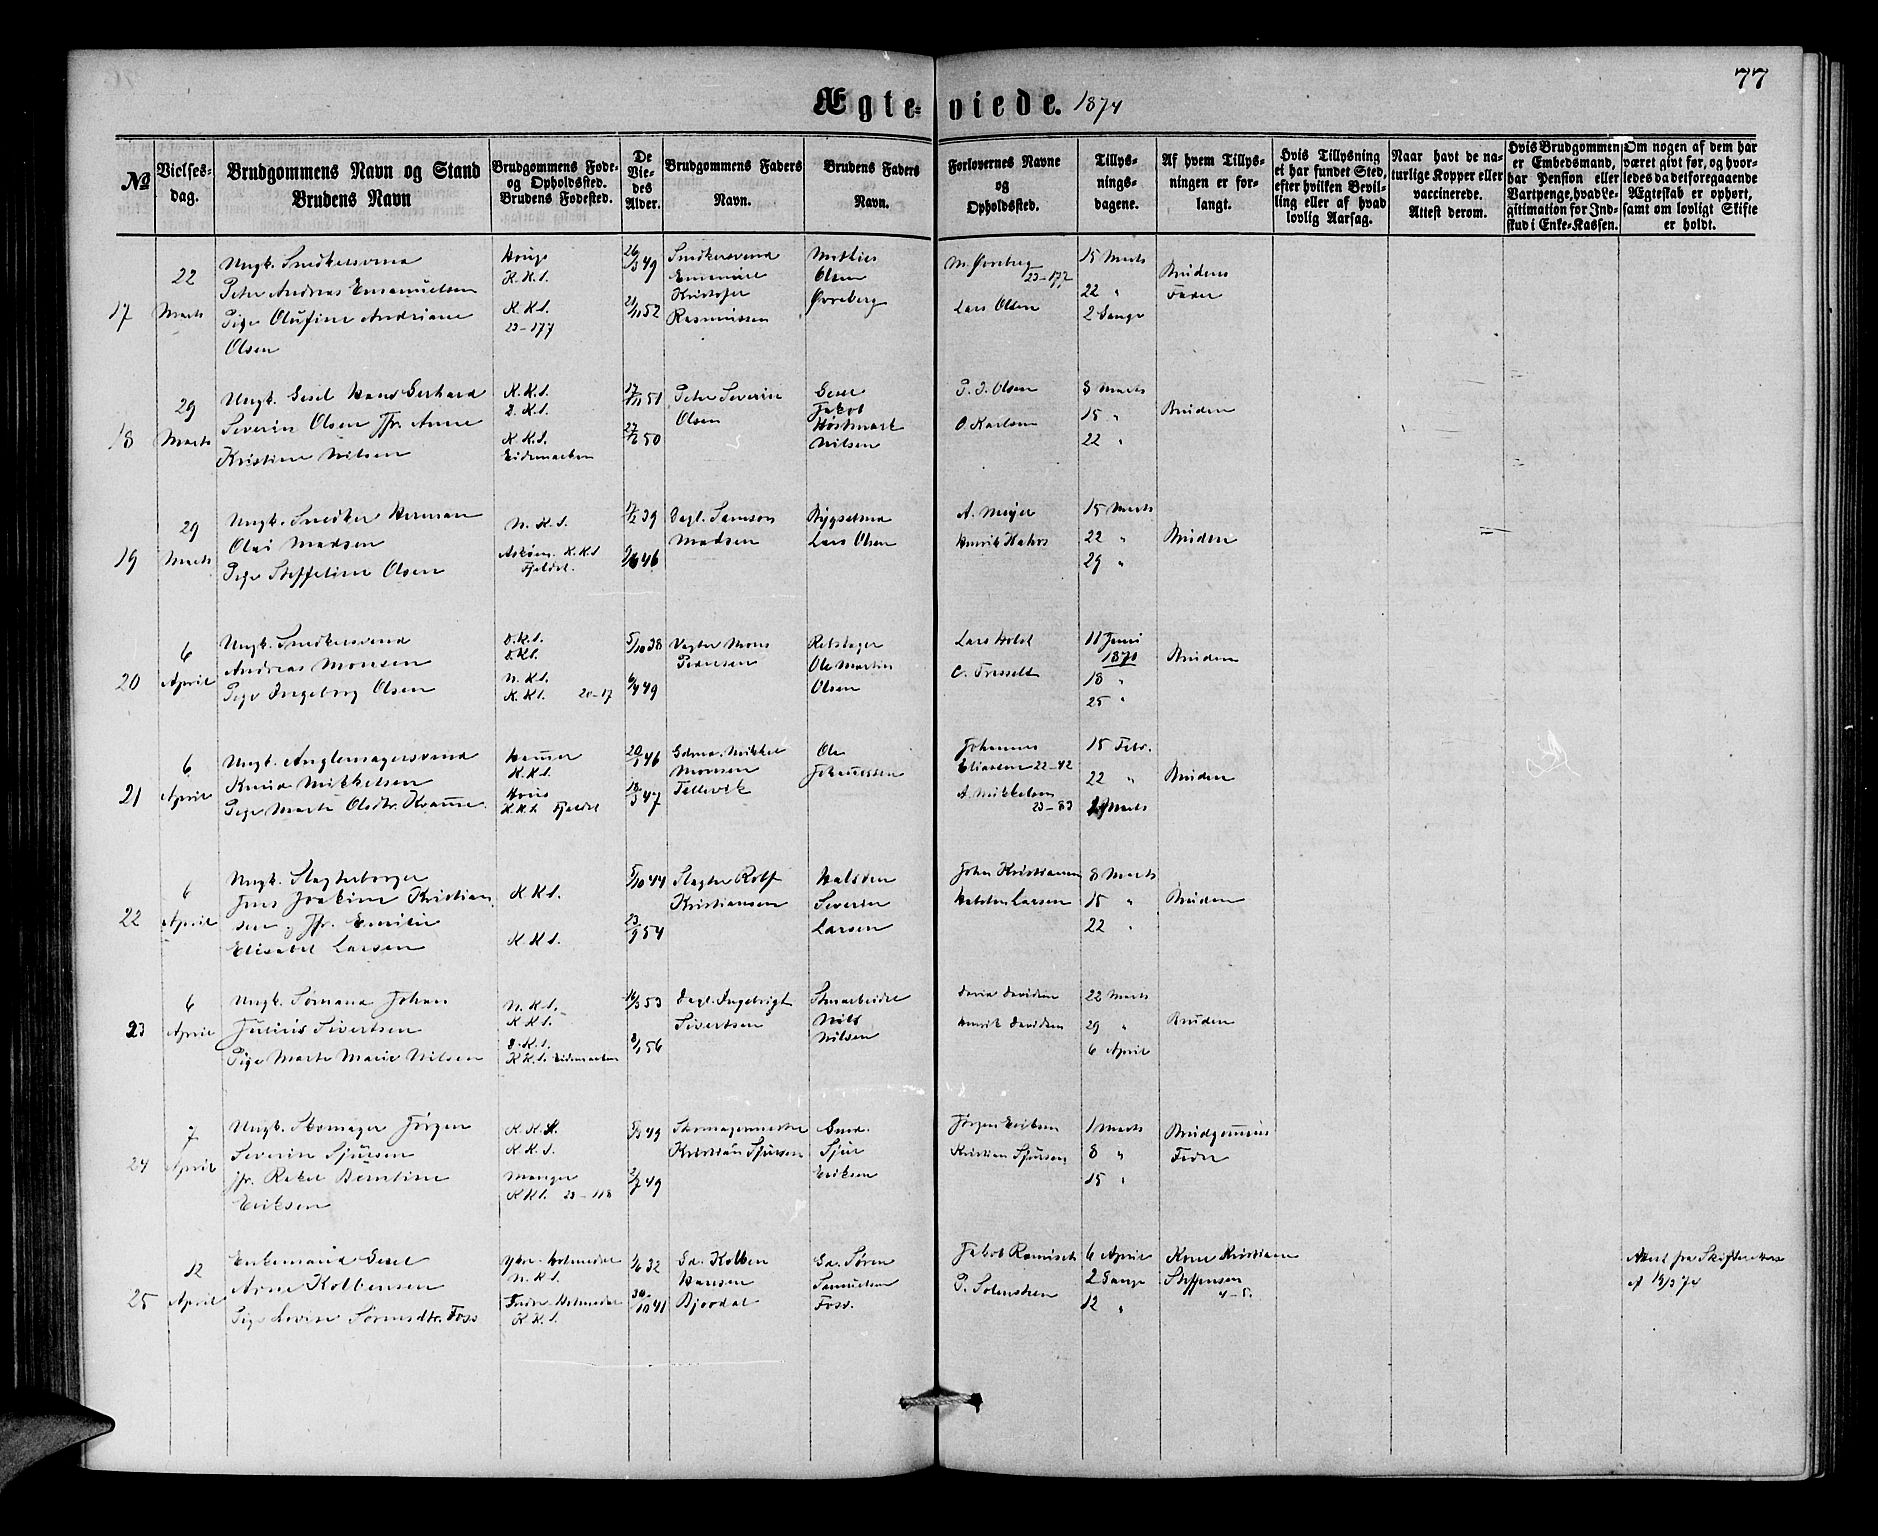 77
Ægteviede. 1874
No
Vielsesdag.
Brudgommens Navn og Stand
Brudens Navn
Brudgommens Føde- og Opholdssted.
Brudens Fødested.
De Viedes Alder.
Brudgommens Faders Navn.
Brudens Faders Navn.
Forlovernes Navne og Opholdssted.
Tillysningsdagene.
Af hvem Tillysningen er forlangt.
Hvis Tillysning ei har fundet Sted, efter hvilken Bevilling eller af hvad lovlig Aarsag.
Naar havt de naturlige Kopper eller vaccinerede. Attest derom.
Hvis Brudgommen er Embedsmand, har Pension eller Vartpenge, hvad Legitimation for Indskud i Enke-Kassen.
Om nogen af dem har været givt før, og hvorledes da det foregaaende Ægteskab er ophørt, samt om lovligt Skifte er holdt.
17
22 Marts
Ungk. Snedkersvend
Peter Andreas Emanuelsen
Pige Olufine Andriane
Olsen
K.K.S.
K.K.S.
23-177
26/3 49
21/11 52
Snedkersvend
Emanuel
Kristofer
Rasmussen
Mathies
Olsen
Øvreberg
M. Øvreberg
23-177
Lars Olsen
15 Marts
22 "
2 Gange
Brudens
Fader
18
29 Marts
Ungk. Gesel Hans Gerhard
Severin Olsen Jfr. Anne
Kristine Nilsen
K.K.S.
D.K.S.
K.K.S.
Eidemarken
17/11 51
Peter Severin
Olsen
Gesel
Jakob
Høstmark
Nilsen
P. J. Olsen
O. Karlsen
8 Marts
15 "
22 "
Bruden
19
29 Marts
Ungk. Snedker Herman
Olai Madsen
Pige Steffeline Olsen
N.K.S.
Askøen K.K.S
Fjeldet.
Dagl. Samson
Madsen
Bygselmd
Lars Olsen
A. Meyer
15 Marts
22 "
29 "
Bruden
20
6 April
Ungk. Snedkersvend
Andreas Monsen
Pige Ingeborg Olsen
D.K.S.
D.K.S.
N.K.S.
K.K.S. 20-17
5/10 38
6/4 49
Vægter Mons
Pedersen
Rebslager
Ole Martin
Olsen
Lars Holst
11 Juni
1871
18 "
25 "
Bruden
21
6 April
Knud Mikkelsen
Pige Marte Olsdtr. Kramme
Hammer
K.K.S.
K.K.S. Fjeldet
20/1 46
Gdmd. Mikkel
Monsen
Tellevik
Ole
Johannessen
Johannes
Eliassen 22-42
A. Mikkelsen
23-83
15 Febr.
22 "
1 Marts
Bruden
22
6 April
Ungk. Slagterborger
Jens Joakim Kristian
sen, Jfr. Emilie
Elisabet Larsen
K.K.S.
K.K.S.
5/10 44
23/9 54
Slagter Rolf
Kristiansen
Halsten
Severin
Larsen
Johan Kristiansen
Halsten Larsen
8 Marts
15 "
22 "
Bruden
23
6 April
Ungk. Sømand Johan
Julius Sivertsen
Pige Marte Marie Nilsen
N.K.S.
K.K.S.
D.K.S.
K.K.S. Eidemarken
16/3 53
Dagl. Ingebrigt
Sivertsen
Stuearbeider
Nils
Nilsen
David Davidsen
Henrik Davidsen
22 Marts
29 "
6 April
Bruden
24
7 April
Ungk. Skomager Jørgen
Severin Sjursen
Jfr. Rakel Berntine
Eriksen
K.K.S.
K.K.S.
Manger
K.K.S. 23-118
Skomagermester
Kristian Sjursen
Gmd.
Sjur
Eriksen
Jørgen Eriksen
Kristian Sjursen
1 Marts
8 "
15 "
Brudgommens
Fader
25
12 April
Enkemand Gesel
Arne Kolbensen
Pige Lovise Sørensdtr. Foss
Ytre Holmedal
N.K.S.
Indre Holmedal
K.K.S.
1/6 32
30/10 41
Gd. Kolben
Hansen
Bjordal
Gd. Søren
Samuelsen
Foss.
P. Solensteen
6 April
2 Gange
12 "
Kone Kristiane
Steffensen
4-5.
Attest fra Skifteretten
af 19/3 74